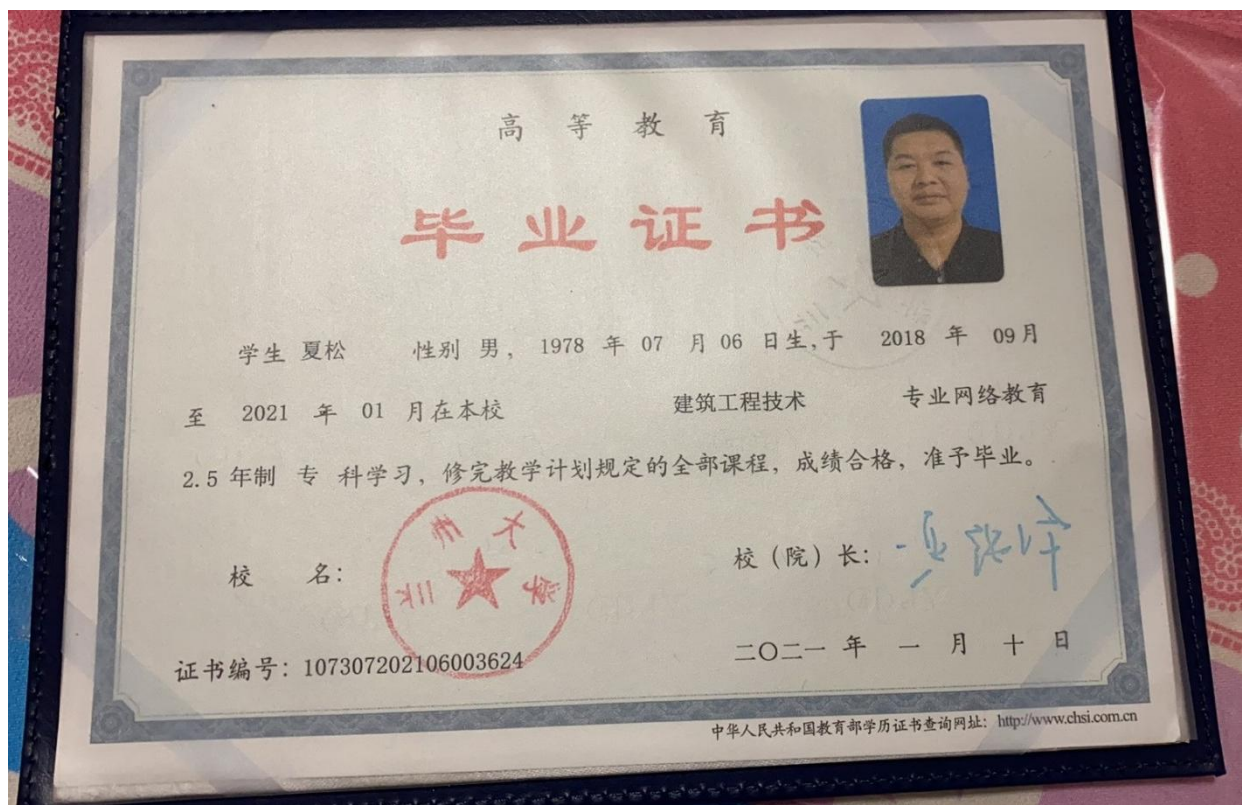 高等教育
毕业证书
学生 夏松 性别 男, 1978 年 07 月 06 日生,于 2018 年 09月
至 2021 年 01 月在本校 建筑工程技术 专业网络教育
2.5 年制 专 科学习, 修完教学计划规定的全部课程, 成绩合格, 准予毕业。
校 名:
校（院）长:
证书编号: 107307202106003624
二〇二一 年 一 月 十 日
中华人民共和国教育部学历证书查询网址: http://www.chsi.com.cn